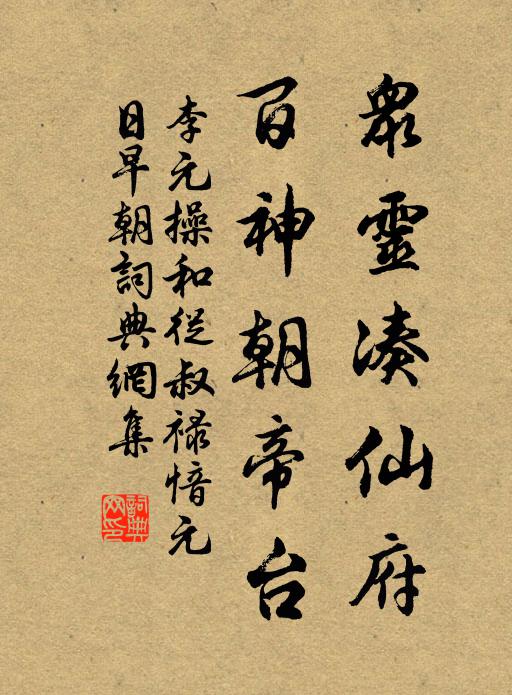 眾靈湊仙府
百神朝帝台
李元操和從叔祿愔元
日早朝詞典網集
詞典
网印